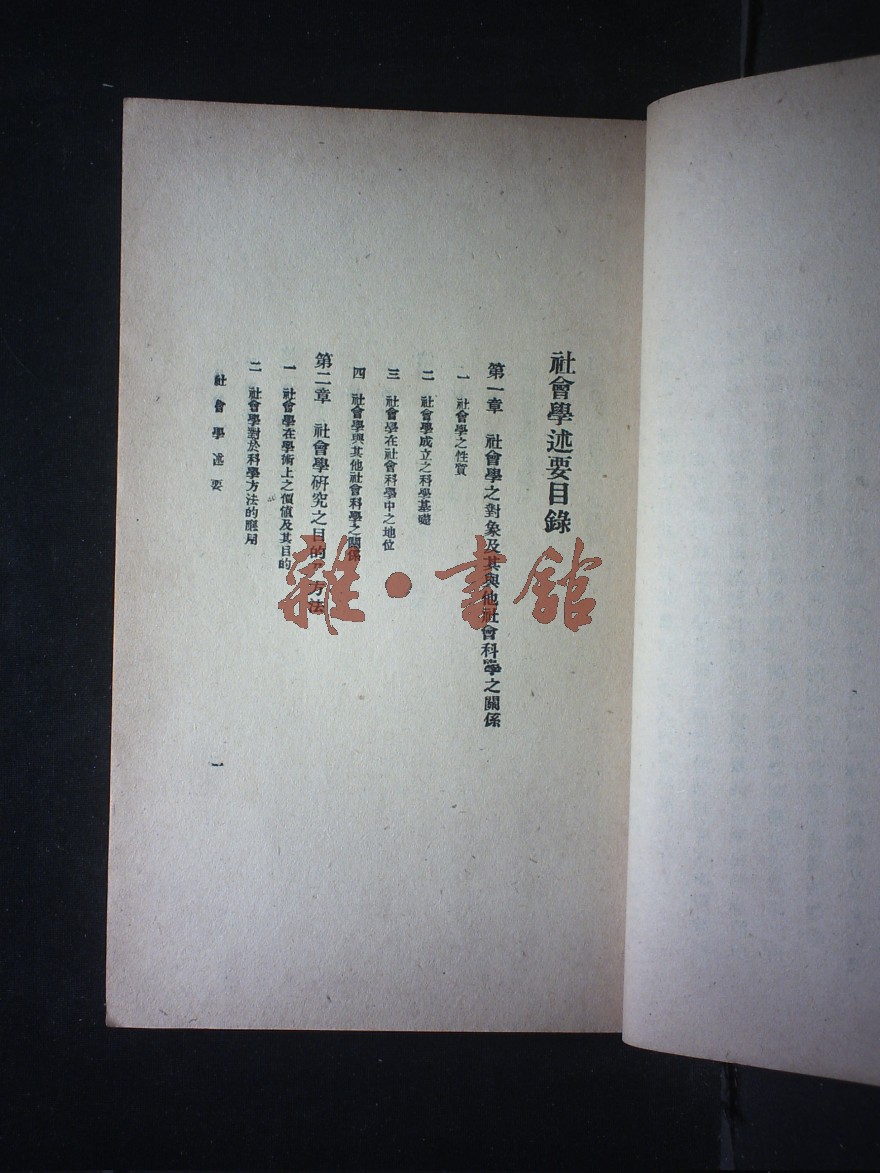 社會學述要目錄
第一章 社會學之對象及其與他社會科學之關係
一 社會學之性質
二 社會學成立之科學基礎
三 社會學在社會科學中之地位
四 社會學與其他社會科學之關係
第二章 社會學硏究之目的與方法
一 社會學在學術上之價値及其目的
二 社會學對於科學方法的應用
社會學述要
一
雜·書館